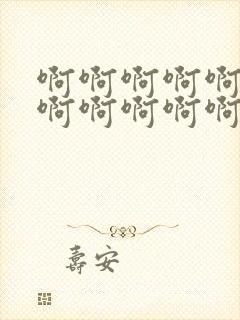 啊啊啊啊啊
啊啊啊啊啊
壽安